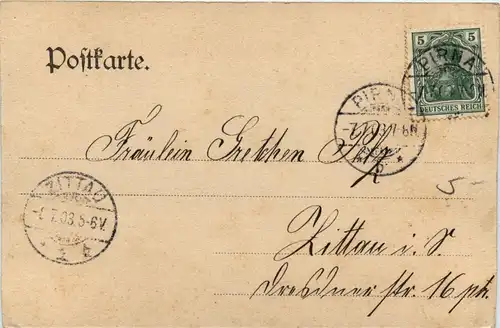 Postkarte.
5 5
DEUTSCHES REICH
PIRNA
PIRNA
Fräulein Gretchen
ZITTAU
5-6V.
Zittau i. S.
Dresdner str. 16 pt.
5-